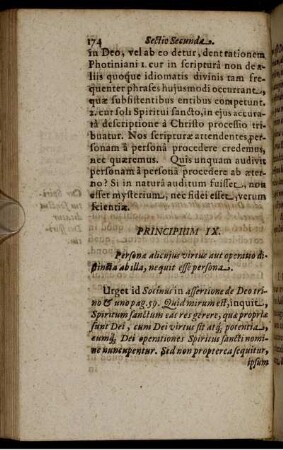 174 Sectio Secunda.
in Deo, vel ab eo detur, dent rationem
Photiniani 1. cur in scripturâ non de a-
liis quoque idiomatis divinis tam fre-
quenter phrases hujusmodi occurrant,
quæ subsistentibus entibus competunt.
2. cur soli Spiritui sancto, in ejus accura-
tâ descriptione à Christo processio tri-
buatur. Nos scripturæ attendentes, per-
sonam à personâ procedere credemus,
nec quæremus. Quis unquam audivit
personam à personâ procedere ab æter-
no? Si in naturâ auditum fuisset, non
esset mysterium, nec fidei esset, verum
scientiæ.
PRINCIPIUM IX.
Personæ alicujus virtus aut operatio di-
stincta ab illa, nequit esse persona.
Urget id Socinus in assertione de Deo tri-
no & uno pag. 59. Quid mirum est, inquit,
Spiritum sanctum eas res gerere, quæ propriæ
sunt Dei, cum Dei virtus sit atq; potentia,
eumq; Dei operationes Spiritus sancti nomi-
ne nuncupentur. Sed non propterea sequitur,
ipsum